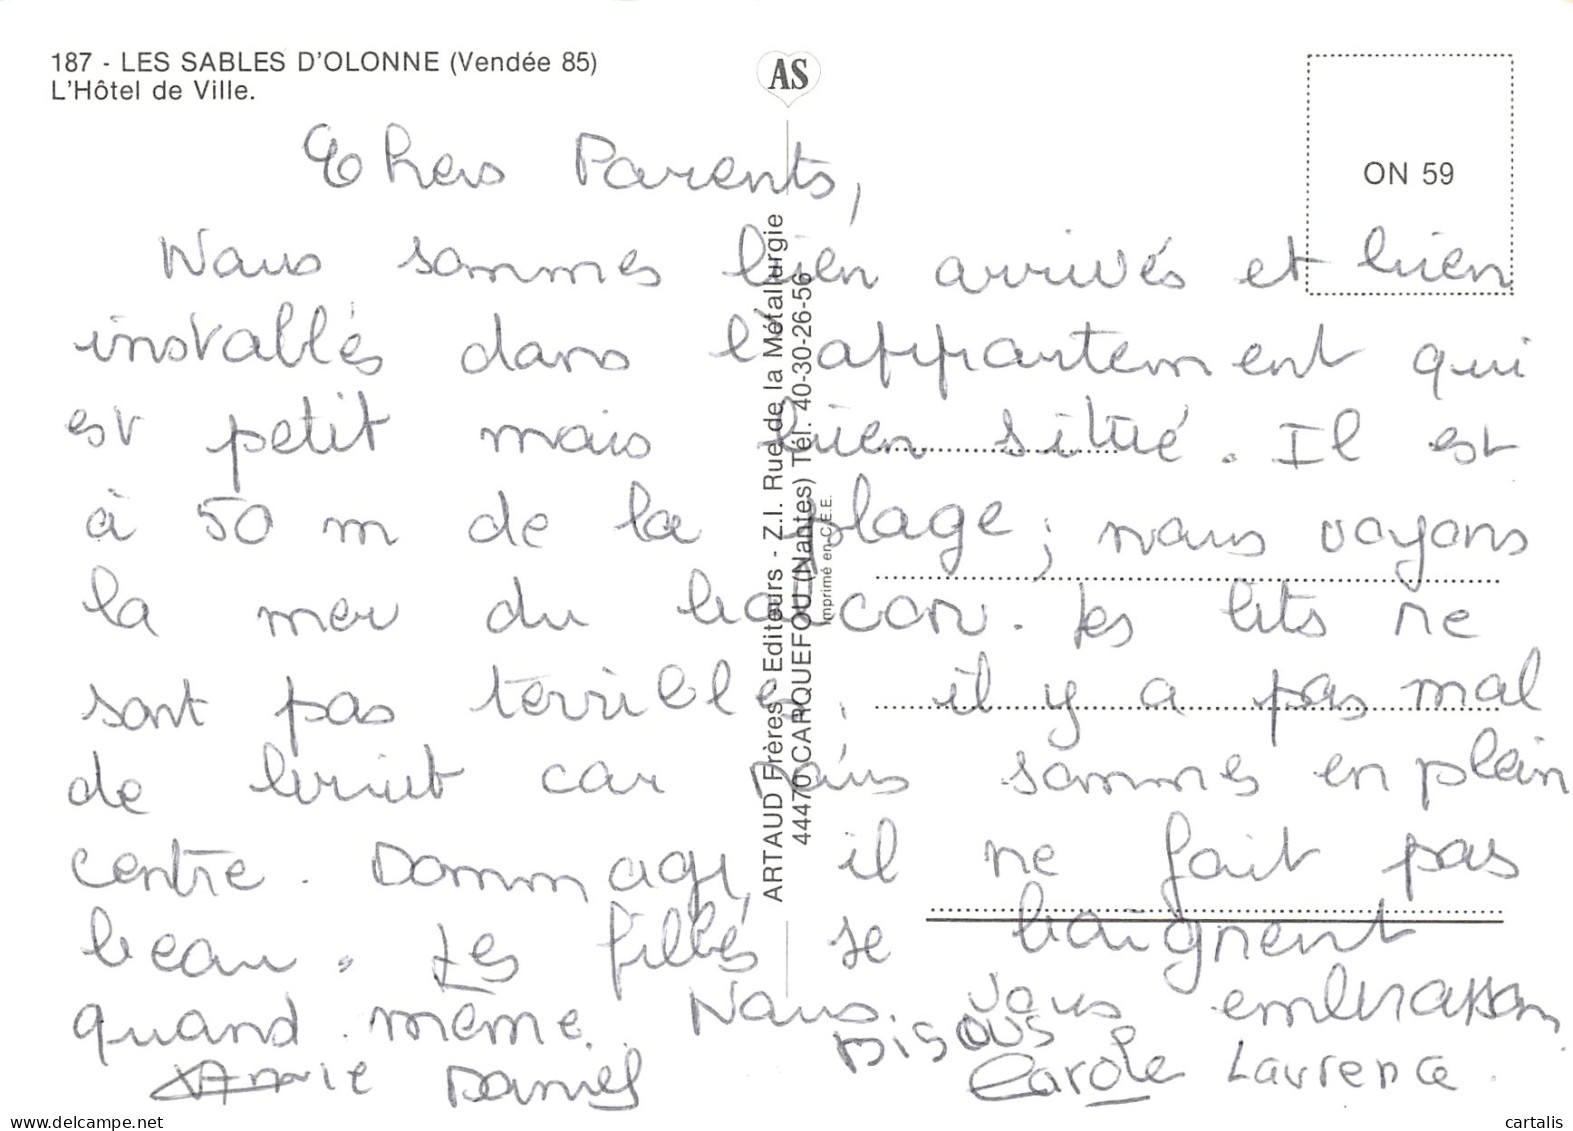 187 - LES SABLES D'OLONNE (Vendée 85)
L'Hôtel de Ville.
AS
ON 59
Chers Parents,
Nous sommes bien arrivés et bien
installés dans l'appartement qui
est petit mais bien situé. Il est
à 50 m de la plage ; nous voyons
la mer du balcon. Les lits ne
sont pas terribles, il y a pas mal
de bruit car nous sommes en plein
centre. Dommage, il ne fait pas
beau. Les filles se baignent
quand même. Nous vous embrassons
Bisous
Annie Daniel Carole Laurence.
ARTAUD Frères - Editeurs - Z.I. Rue de la Métallurgie
44470 CARQUEFOU (Nantes) Tél. 40-30-26-56
Imprimé en C.E.E.
www.delcampe.net
cartalis